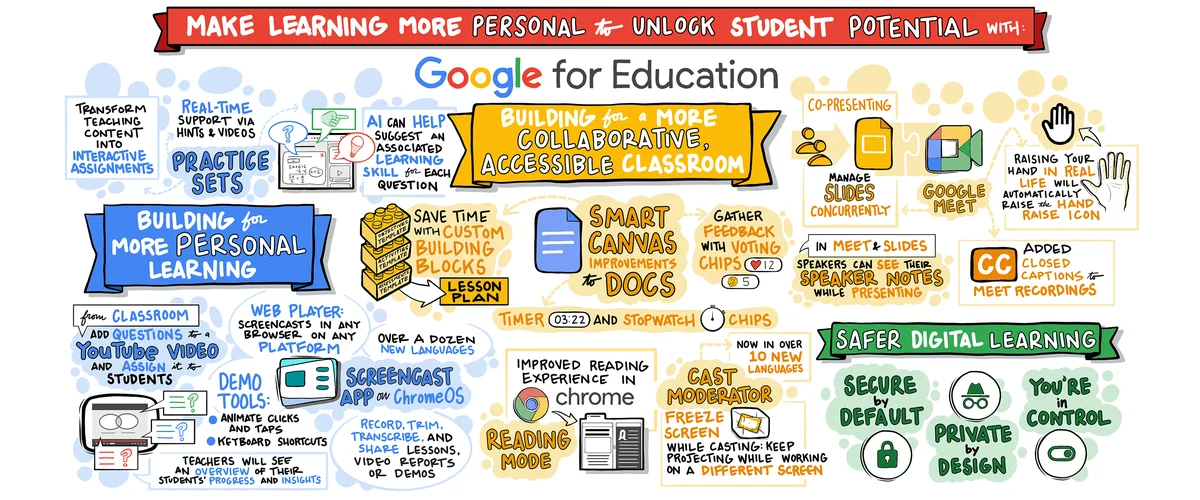 MAKE LEARNING MORE PERSONAL to UNLOCK STUDENT POTENTIAL WITH:
Google for Education
TRANSFORM
TEACHING
CONTENT
INTO
INTERACTIVE
ASSIGNMENTS
REAL-TIME
SUPPORT VIA
HINTS & VIDEOS
PRACTICE
SETS
AI CAN HELP
SUGGEST AN
ASSOCIATED
LEARNING
SKILL for EACH
QUESTION
BUILDING for
MORE PERSONAL
LEARNING
from CLASSROOM
ADD QUESTIONS to a
YouTube VIDEO
AND ASSIGN it to
STUDENTS
TEACHERS WILL SEE
AN OVERVIEW OF THEIR
STUDENTS' PROGRESS AND INSIGHTS
WEB PLAYER:
SCREENCASTS IN ANY
BROWSER ON ANY
PLATFORM
OVER A DOZEN
NEW LANGUAGES
SCREENCAST
APP on ChromeOS
DEMO
TOOLS:
ANIMATE CLICKS
AND TAPS
KETBOARD SHORTCUTS
RECORD, TRIM,
TRANSCRIBE, AND
SHARE LESSONS,
VIDEO REPORTS
OR DEMOS
BUILDING for a MORE
COLLABORATIVE,
ACCESSIBLE CLASSROOM
SAVE TIME
WITH CUSTOM
BUILDING
BLOCKS
OBJECTIVE
TEMPLATE
ACTIVITIES
TEMPLATE
TEMPLATE
LESSON
PLAN
SMART
CANVAS
IMPROVEMENTS
to DOCS
GATHER
FEEDBACK
WITH VOTING
CHIPS
12
5
TIMER 03:22 AND STOPWATCH CHIPS
CO-PRESENTING
MANAGE
SLIDES
CONCURRENTLY
GOOGLE
MEET
RAISING YOUR
HAND IN REAL
LIFE WILL
AUTOMATICALLY
RAISE the HAND
RAISE ICON
IN MEET & SLIDES
SPEAKERS CAN SEE THEIR
SPEAKER NOTES
WHILE PRESENTING
CC
ADDED
CLOSED
CAPTIONS to
MEET RECORDINGS
IMPROVED READING
EXPERIENCE IN
chrome
READING
MODE
CAST
MODERATOR
NOW IN OVER
10 NEW
LANGUAGES
FREEZE
SCREEN
WHILE CASTING: KEEP
PROJECTING WHILE WORKING
ON A DIFFERENT SCREEN
SAFER DIGITAL LEARNING
SECURE
by
DEFAULT
PRIVATE
by
DESIGN
YOU'RE
in
CONTROL